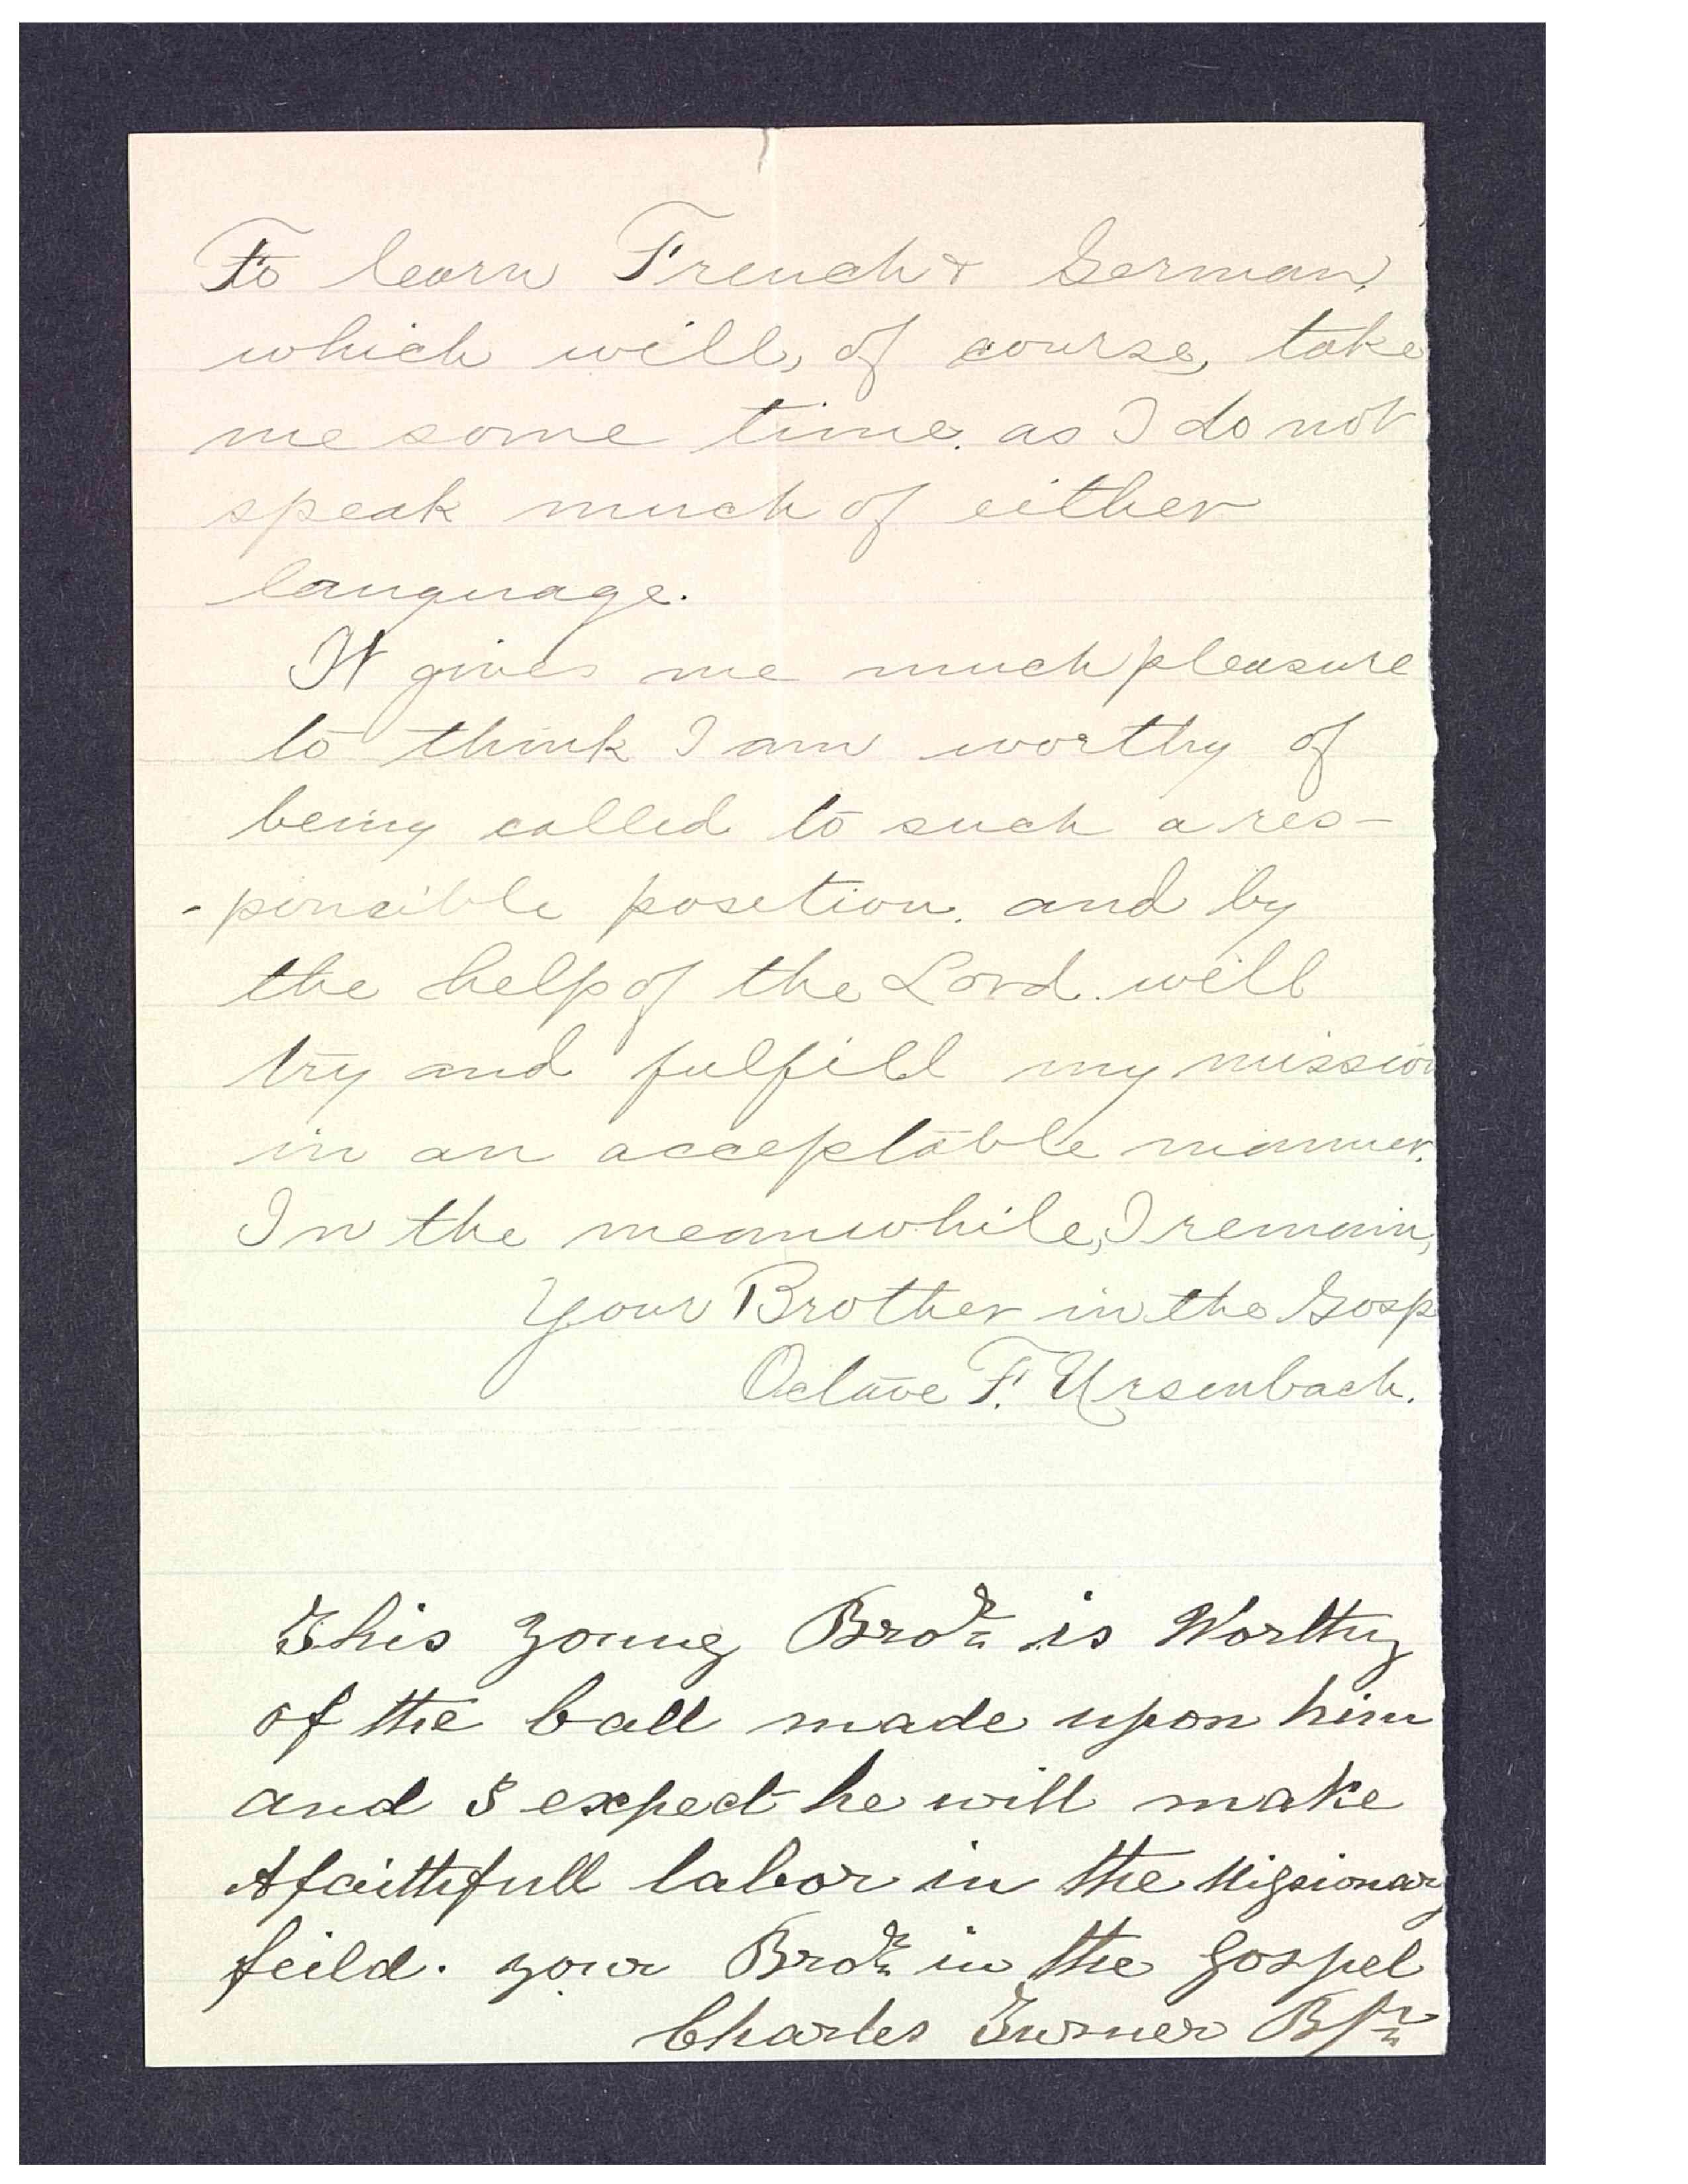 To learn French & German,
which will, of course, take
me some time. as I do not
speak much of either
language.
It gives me much pleasure
to think I am worthy of
being called to such a res-
-ponsible position. and by
the help of the Lord. will
try and fulfill my mission
in an acceptable manner.
In the meanwhile, I remain,
Your Brother in the Gosp
Octave F. Ursenbach.
This young Bror is Worthy
of the Call made upon him
and I expect he will make
A faithfull labor in the Missionary
feild. your Bror in the Gospel
Charles Turner Bp